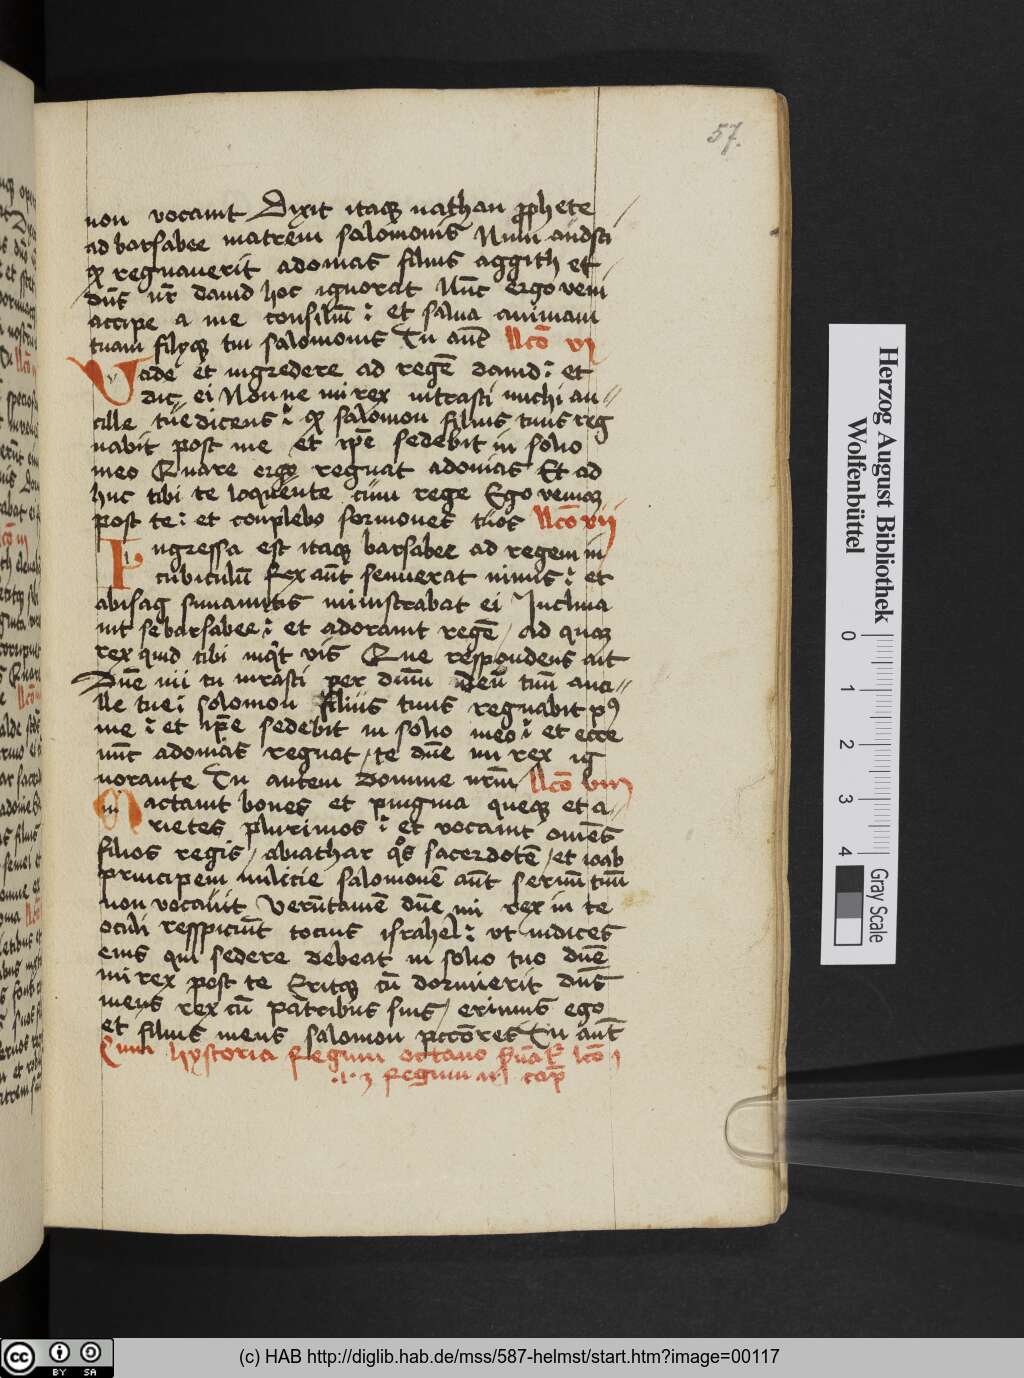 57.
non vocauit Dixit itaq nathan prophete
ad barsabee matrem salomonis Num audsti
q regnauerit adonias filius aggith et
dns nr dauid hoc ignorat Nūc ergo veni
accipe a me consiliū : et salua animam
tuam filyq tui salomonis Tu autē lcō vi
Uade et ingredere ad regē dauid : et
dic ei Nonne mi rex iurasti michi an
cille tue dicens : q salomon filius tuus reg
nabit post me et ipē sedebit in solio
meo Quare ergo regnat adonias Et ad
huc tibi te loquente cum rege Ego veniā
post te : et conplebo sermones tuos lcō vii
Ingressa est itaq barsabee ad regem in
cubiculū Rex aūt senuerat nimis : et
abisag sunamitis ministrabat ei Inclina
uit se barsabee : et adorauit regē / ad quā
rex quid tibi inqt vis Que respondens ait
Dne mi tu iurasti per dnm deū tuū anci
lle tue : salomon filius tuus regnabit p9
me : et ipē sedebit in solio meo : et ecce
nūc adonias regnat / te dne mi rex ig
norante Tu autem domine nrm lcō viii
Mactauit boues et pinguia queq et a
rietes plurimos : et vocauit omēs
filios regis / abiathar qs sacerdotē / et ioab
principem milicie salomonē aūt seruū tuū
non vocauit Verūtamē dne mi rex in te
oculi resspiciūt tocius israhel : vt iudices
eius qui sedere debeat in solio tuo dne
mi rex post te Eritq cū dormierit dns
meus rex cū patribus suis / erimus ego
et filius meus salomon pctores Tu aūt
Cum hystoria Regum octauo lcō i
3 Regum cap
Herzog August Bibliothek
Wolfenbüttel
0 1 2 3 4
Gray Scale
cc BY SA
(c) HAB http://diglib.hab.de/mss/587-helmst/start.htm?image=00117